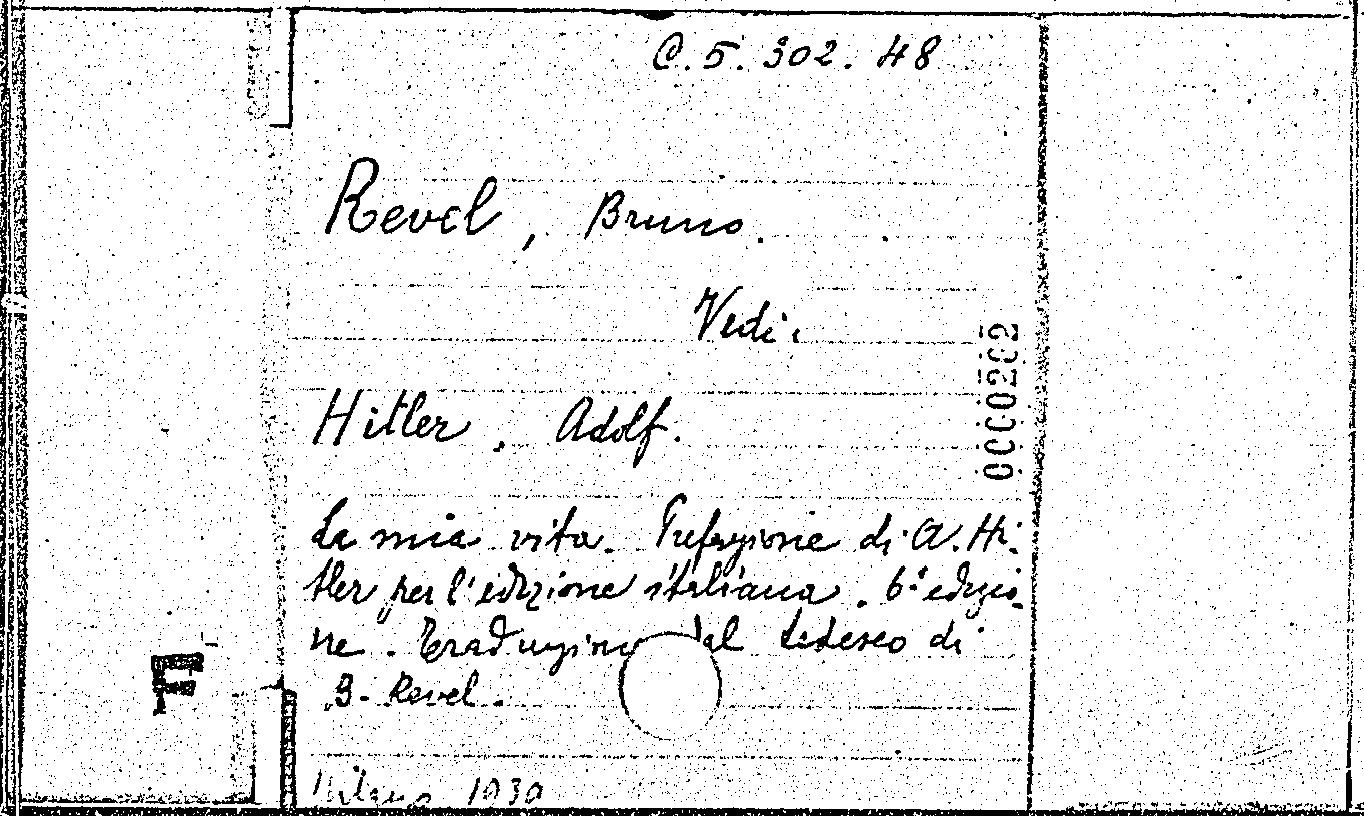 C. 5. 302. 48
Revel, Bruno.
Vedi:
Hitler, Adolf.
La mia vita. Prefazione di A. Hi-
tler per l'edizione italiana. 6ª edizio-
ne. Traduzione dal tedesco di
B. Revel.
Milano 1939
0000202
F